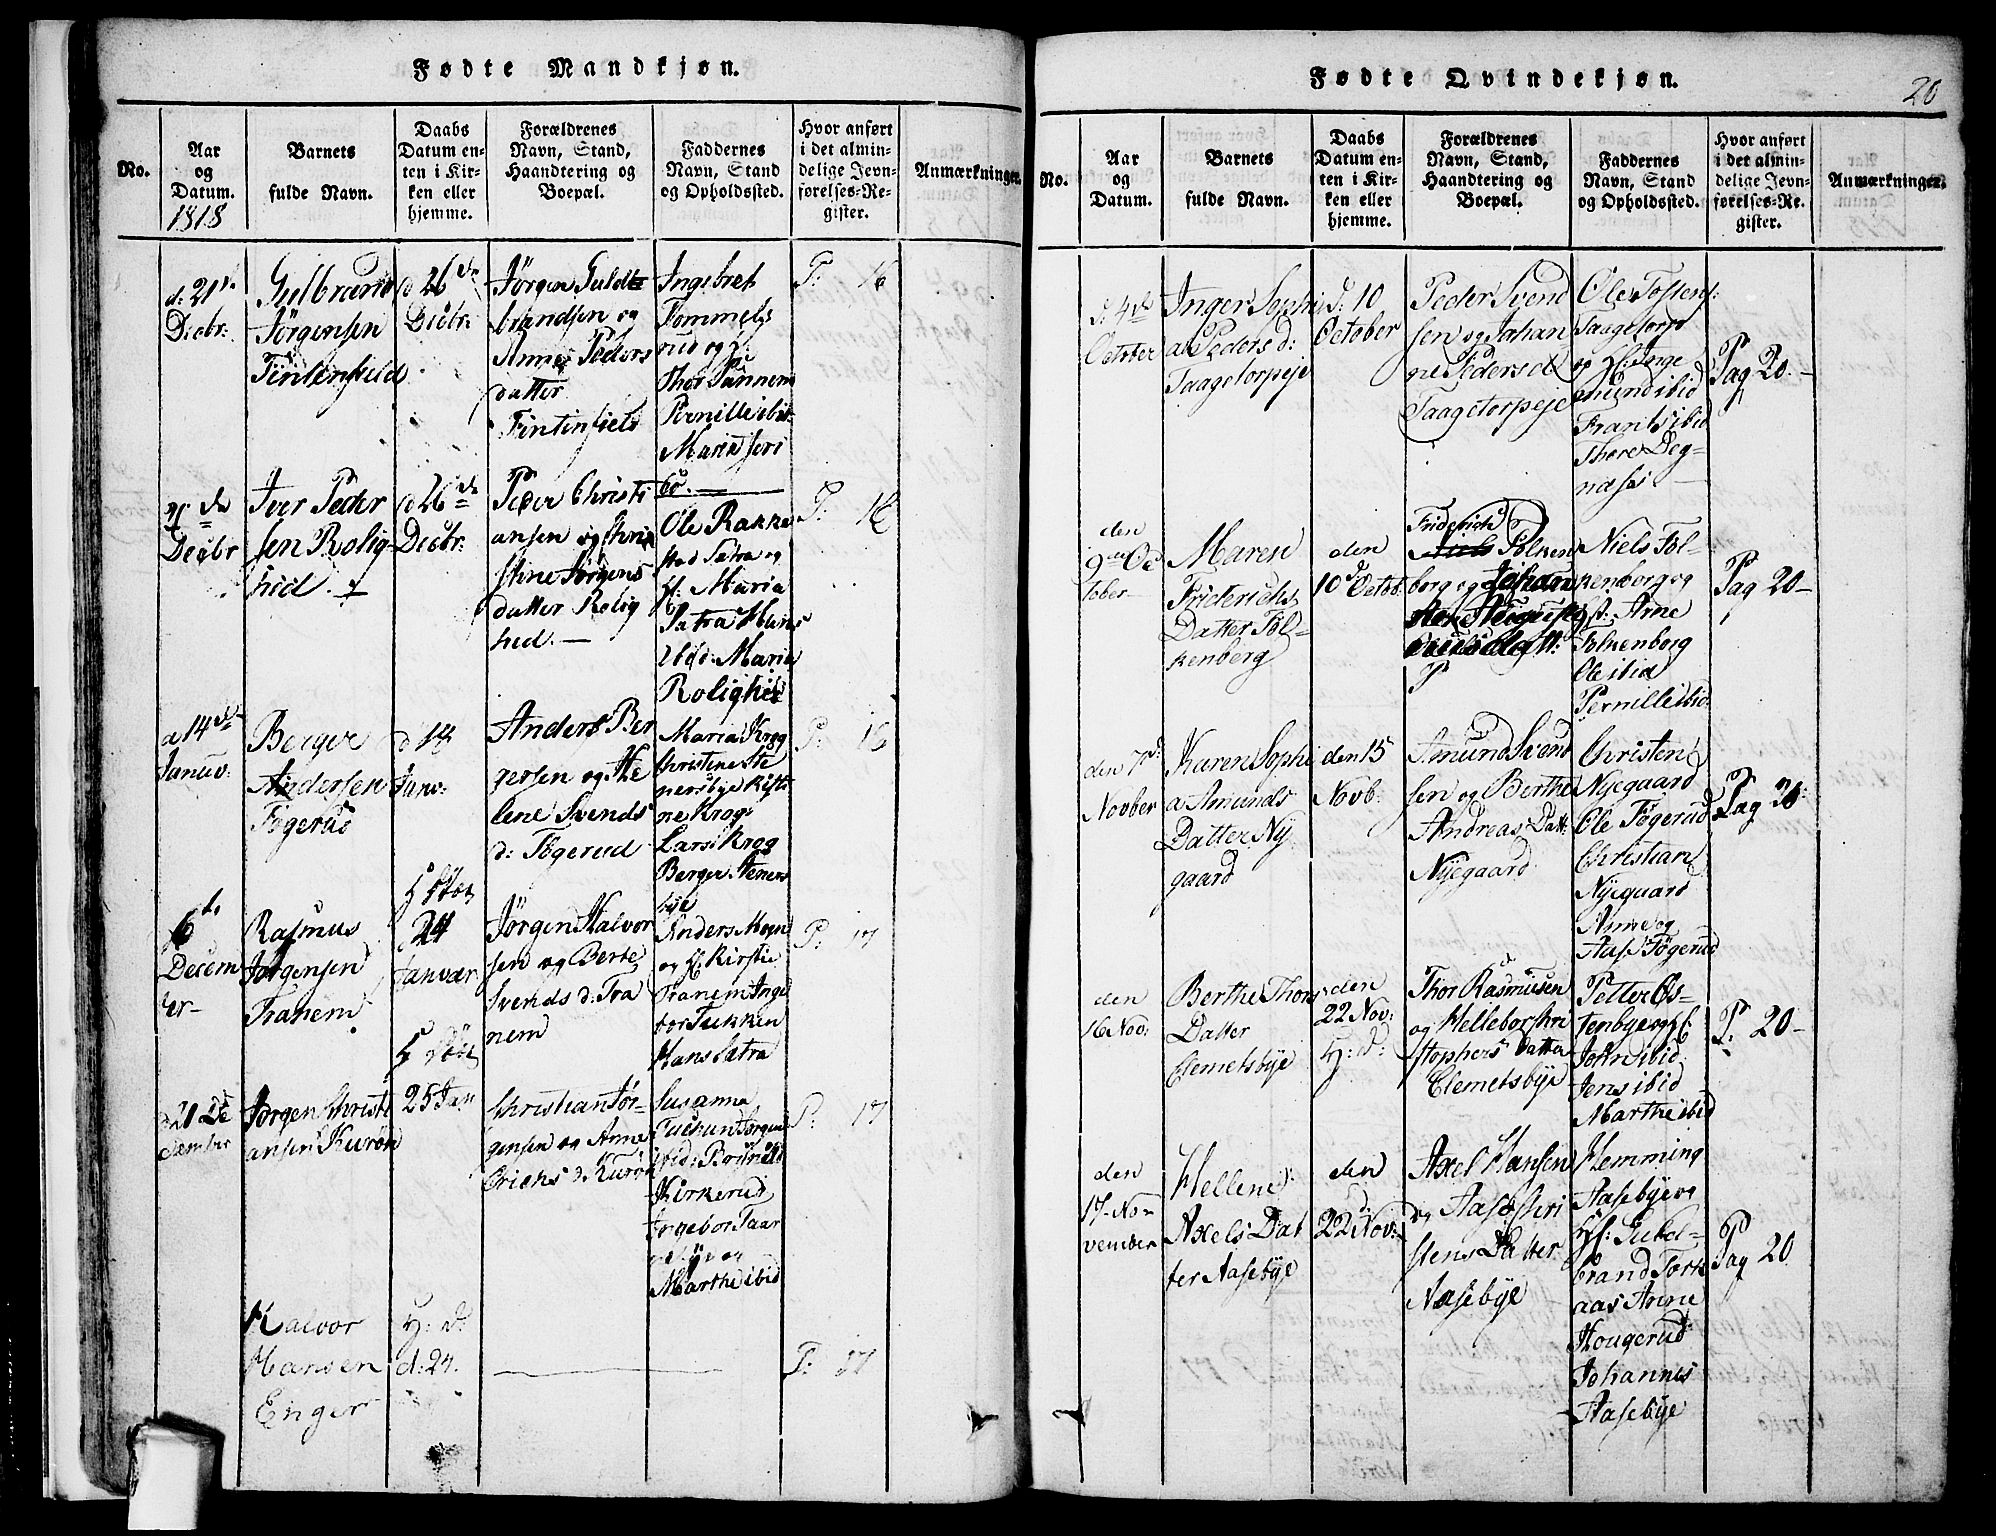 Fødte Mandkjøn.
No.
Aar
og
Datum.
1818
Barnets
fulde Navn.
Daabs
Datum en-
ten i Kir-
ken eller
hjemme.
Forældrenes
Navn, Stand,
Haandtering og
Boepæl.
Faddernes
Navn, Stand
og Opholdssted.
Hvor anført
i det almin-
delige Jevn-
førelses-Re-
gister.
Anmærkninger.
d: 21de
Decbr:
Gulbrand
Jørgensen
Tintenfield
d 26de
Decbr:
Jørgen Guld
brandsen og
Anne Peders
datter
Tintenfield
Ingebret
Tommels
rud og
Thor Sannem
Pernille ibid:
Maria
P: 16
Decbr
Iver Peder
sen Rolig
hed.
d 26de
Decbr:
Peder Christi
ansen og Chri
stine Jørgens
datter Rolig
hed. —
Ole Rakke
stad Sætra og
H: Maria
Sætra
ibid: Maria
Rolighed
P: 16
d 14de
Januv:
Berger
Andersen
Togerud
d 14
Janv:
Anders Ber
gersen og He
lene Svends
d: Togerud
Maria Krog
Christine Ste
nersbye Kisti
ne Krog
Lars Krog
Berger Steners
bye
P: 16
6te
Decem
ber-
Rasmus
Jørgensen
Tranem
H døbt
24
Janvær
Jørgen Halvor
sen og Berte
Svends d: Tra
nem
Anders Moen
og H Kirstie
Tranem Inge
bor Tukken
Hans Sætra
P: 17
21 De
cember
Jørgen Christi
ansen Kurøn
H døbt
25 Jan
Christian Jør-
gensen og Anne
Erichs d: Kurøn
Susanna
Tukkun Jørgen
ibid:
Kirkerud
Ingebor Taar
bye og
Marthe ibid
P: 17
Halvor
Hansen
Enger
H: d:
d: 24.
P: 17
Fødte Qvindekjøn.
20
No.
Aar
og
Datum.
Barnets
fulde Navn.
Daabs
Datum en-
ten i Kir-
ken eller
hjemme.
Forældrenes
Navn, Stand,
Haandtering og
Boepæl.
Faddernes
Navn, Stand
og Opholdssted.
Hvor anført
i det almin-
delige Jevn-
førelses-Re-
gister.
Anmærkninger.
d: 4de
October
Inger Sophi
a Peders d:
Taagetorpeje
d: 10
October
Peder Svend
sen og Johan
ne Peders d
Taagetorpeje
Ole Tosten:
Taagetorp
og H: Inge
amund ibid
Frants ibid
Thore Deg-
næs —
Pag 20 —
den
9de Oc
tober
Maren
Friderichs
Datter Fol-
kenberg
den
10d Octob.
Friderich
Niels Folken
borg og Johan
Niels Fol-
kenborg og
H: Anne
Folkenborg
Ole ibid
Pernille ibid:
Pag 20 —
den 7d:
Novber
Karen Sophi
a Amunds
Datter Ny
gaard
den 15
Novb:
Amund Svend
sen og Berthe
Andreas Datt:
Nyegaard
Christen
Nyegaard
Ole Togerud
Christian
Nyegaard
Anne og
Aase Togerud
Pag 20:
den
16 Nov:
Berthe Thors
Datter
Clemetsbye
den
22 Nov:
H: d:
Thor Rasmusen
og Hellebor Chri
stophers Datter
Clemetsbye
Petter Øs-
tenbye og H:
John ibid:
Jens ibid
Marthe ibid
P: 20 —
den
17 No-
vember
Hellene
Axels Dat
ter Aasebye
den
22 Nov:
Axel Hansen
og Aase Chri
stens Datter
Aasebye
Hemming
Aasebye og
H: Gulde-
brand Tork
aas Anne
Hougerud
Johannes
Aasebye
Pag 20